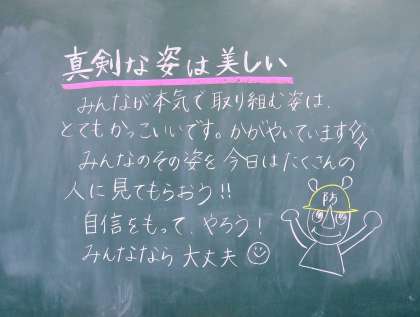 真剣な姿は美しい
みんなが本気で取り組む姿は、
とてもかっこいいです。かがやいています
みんなのその姿を今日はたくさんの
人に見てもらおう!!
自信をもって、やろう!
みんななら大丈夫
防